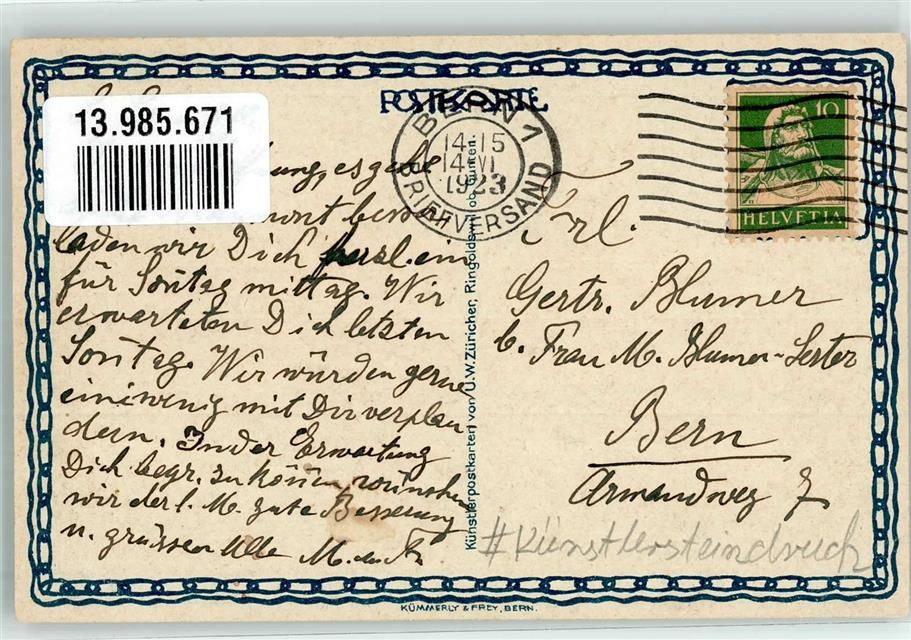 POSTKARTE
13.985.671
BERN 1
14.15
14.VI.
1923
BRIEFVERSAND
10
HELVETIA
es gehe
laden wir Dich herzl. ein
für Sontag mittag. Wir
erwarteten Dich letzten
Sontag. Wir würden gerne
einiwenig mit Dir verplau
dern. In der Erwartung
Dich begr. zu könen, wünschen
wir der l. M. gute Besserung
u. grüssen Alle M.
Künstlerpostkarten von U.W. Züricher, Ringoldswil ob Gunten.
Frl.
Gertr. Blumer
b. Frau M. Blumer-
Bern
Armandweg 7
#Künstlersteindruck
KÜMMERLY & FREY, BERN.